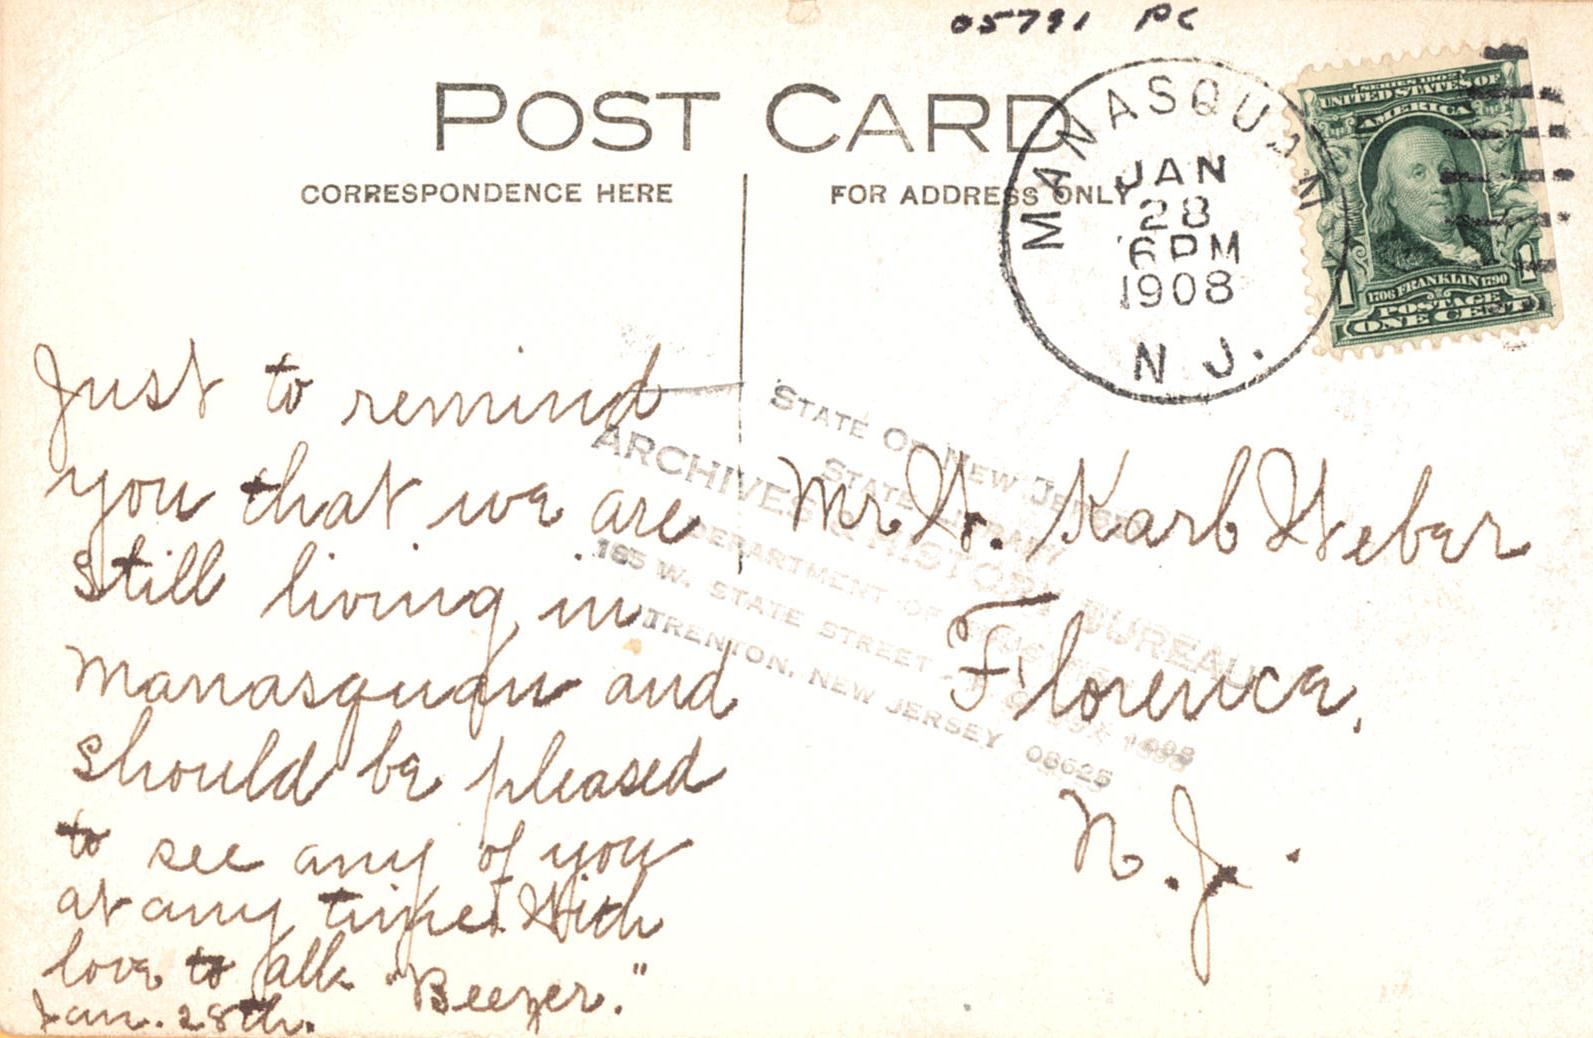 05791 PC
POST CARD
CORRESPONDENCE HERE
FOR ADDRESS ONLY
MANASQUAN
JAN
28
6 PM
1908
N. J.
SERIES 1902
UNITED STATES OF
AMERICA
1706 FRANKLIN 1790
1 1
POSTAGE
ONE CENT
Just to remind
you that we are
still living in
Manasquan and
should be pleased
to see any of you
at any time. With
love to all. "Beezer."
Jan. 28th.
STATE OF NEW JERSEY
STATE LIBRARY
ARCHIVES & HISTORY BUREAU
DEPARTMENT OF
185 W. STATE STREET
TRENTON, NEW JERSEY 08625
Mr. W. Karb Weber
Florence,
N. J.